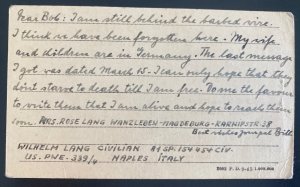 Dear Bob: I am still behind the barbed wire.
I think we have been forgotten here. My wife
and children are in Germany. The last message
I got was dated March 45. I can only hope that they
dont starve to death till I am free. Do me the favour
to write them that I am alive and hope to reach them
soon. MRS. ROSE LANG WANZLEBEN-MAGDEBURG-KARNIPSTR-38
Best wishes Bill
WILHELM LANG CIVILIAN 81SP.154454CIV.
US. PWE. 339/4 NAPLES ITALY